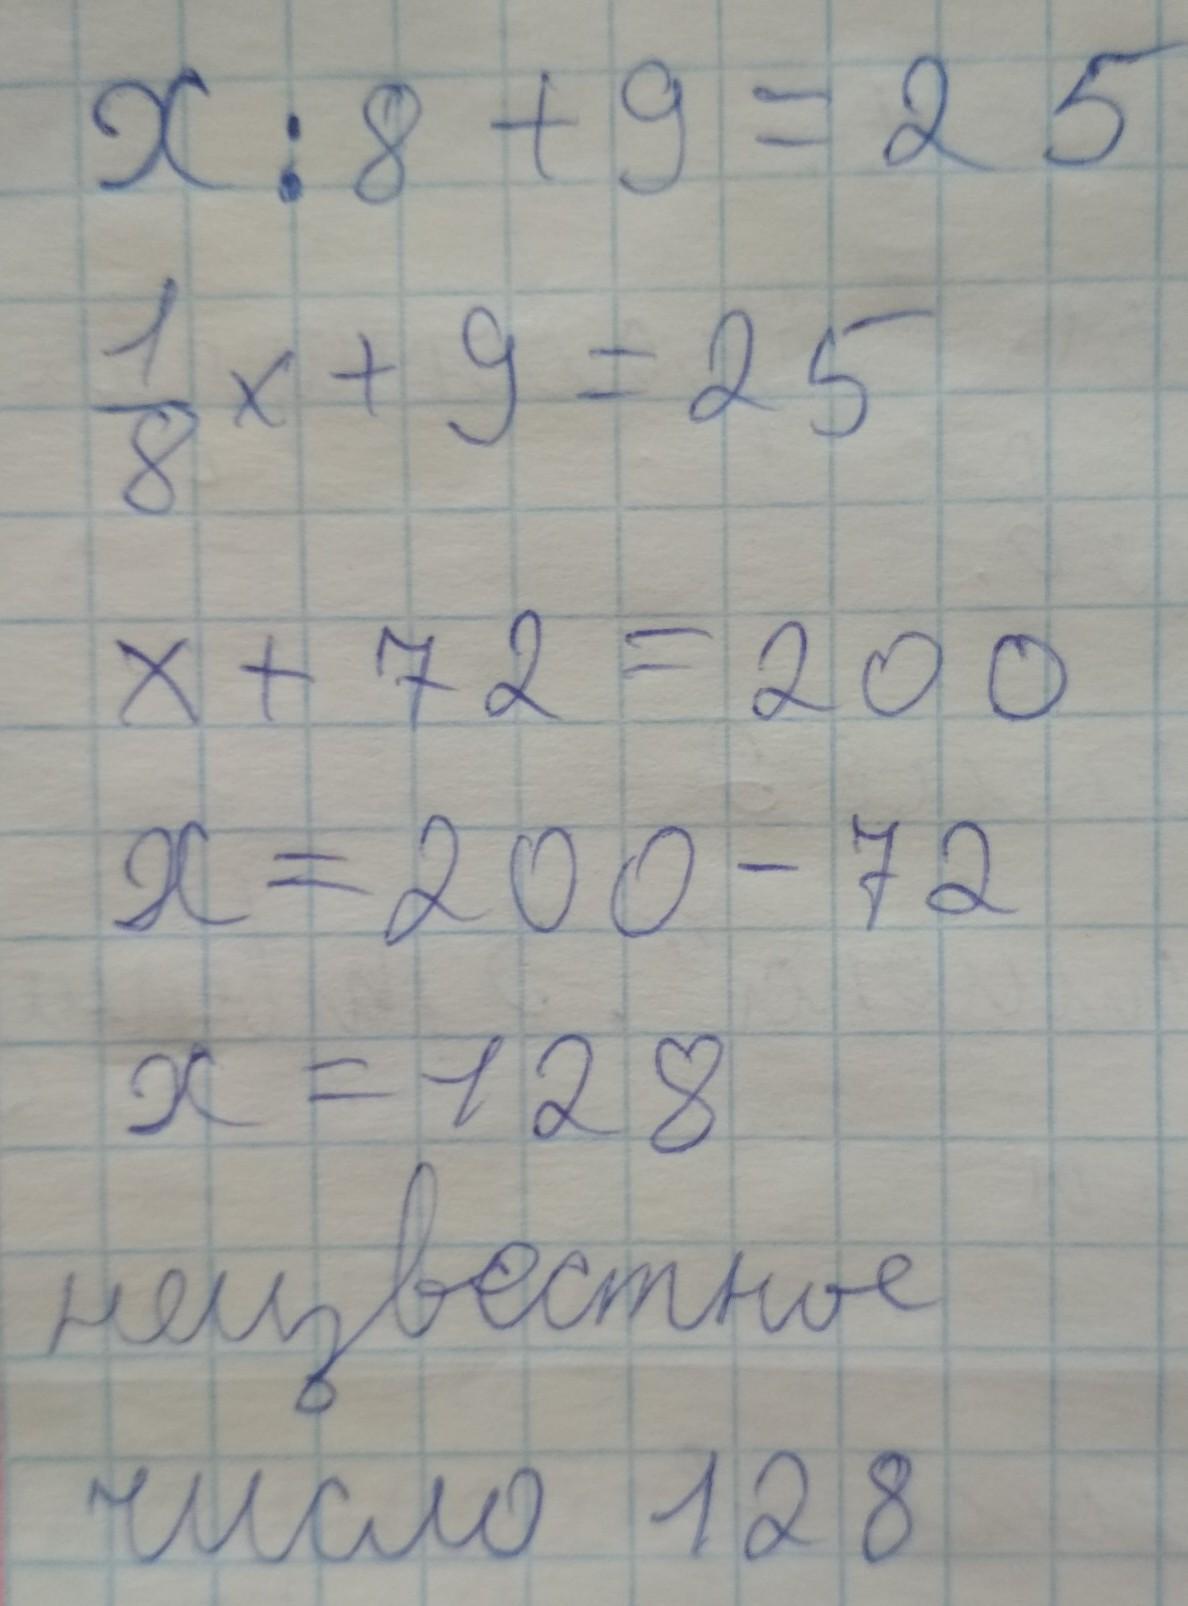 x : 8 + 9 = 25
1/8 x + 9 = 25
x + 72 = 200
x = 200 - 72
x = 128
неизвестное
число 128